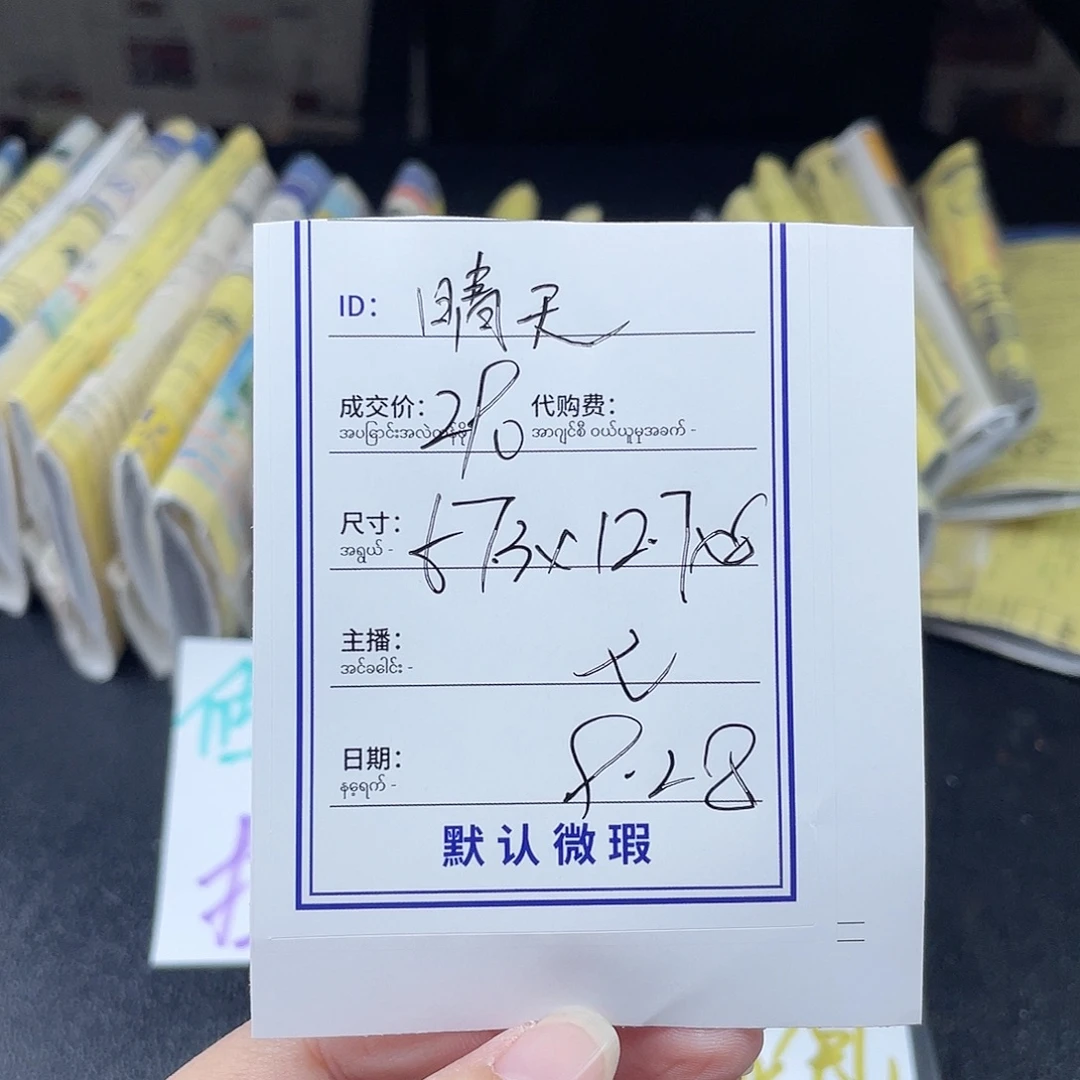 ID: 晴天
成交价: 280 代购费:
အပြောင်းအလဲတန်ဖိုး အာဂျင်စီ ဝယ်ယူမှုအခက် -
尺寸: 57.3x12.7x6
အရွယ် -
主播: 七
အင်ခေါင်း -
日期: 8.28
နေ့ရက် -
默认微瑕